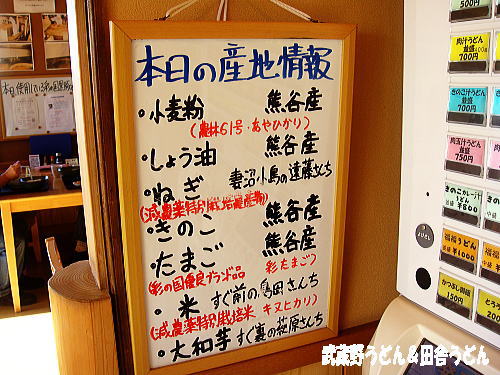 本日の産地情報
・小麦粉 熊谷産
(農林61号・あやひかり)
・しょう油 熊谷産
・ねぎ 妻沼小島の遠藤さんち
(減農薬特別栽培農産物)
・きのこ 熊谷産
・たまご 熊谷産
(彩の国優良ブランド品 彩たまご)
・米 すぐ前の島田さんち
(減農薬特別栽培米 キヌヒカリ)
・大和芋 すぐ裏の萩原さんち
500円
肉汁うどん
並盛
700円
きのこ汁うどん
並盛
700円
肉玉汁うどん
並盛
750円
きのこカレー汁
うどん
¥800
福福うどん
¥1000
150円
200
武蔵野うどん&田舎うどん